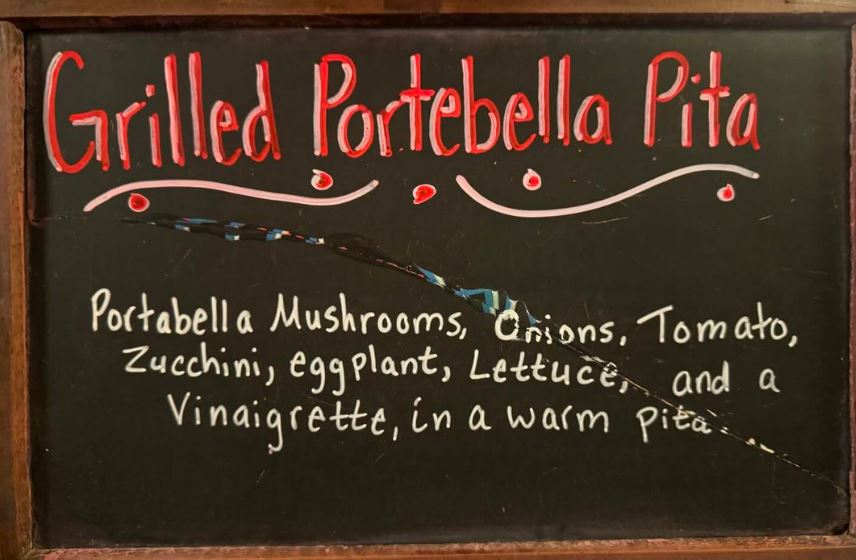 Grilled Portebella Pita
Portabella Mushrooms, Onions, Tomato,
Zucchini, eggplant, Lettuce, and a
Vinaigrette, in a warm pita.